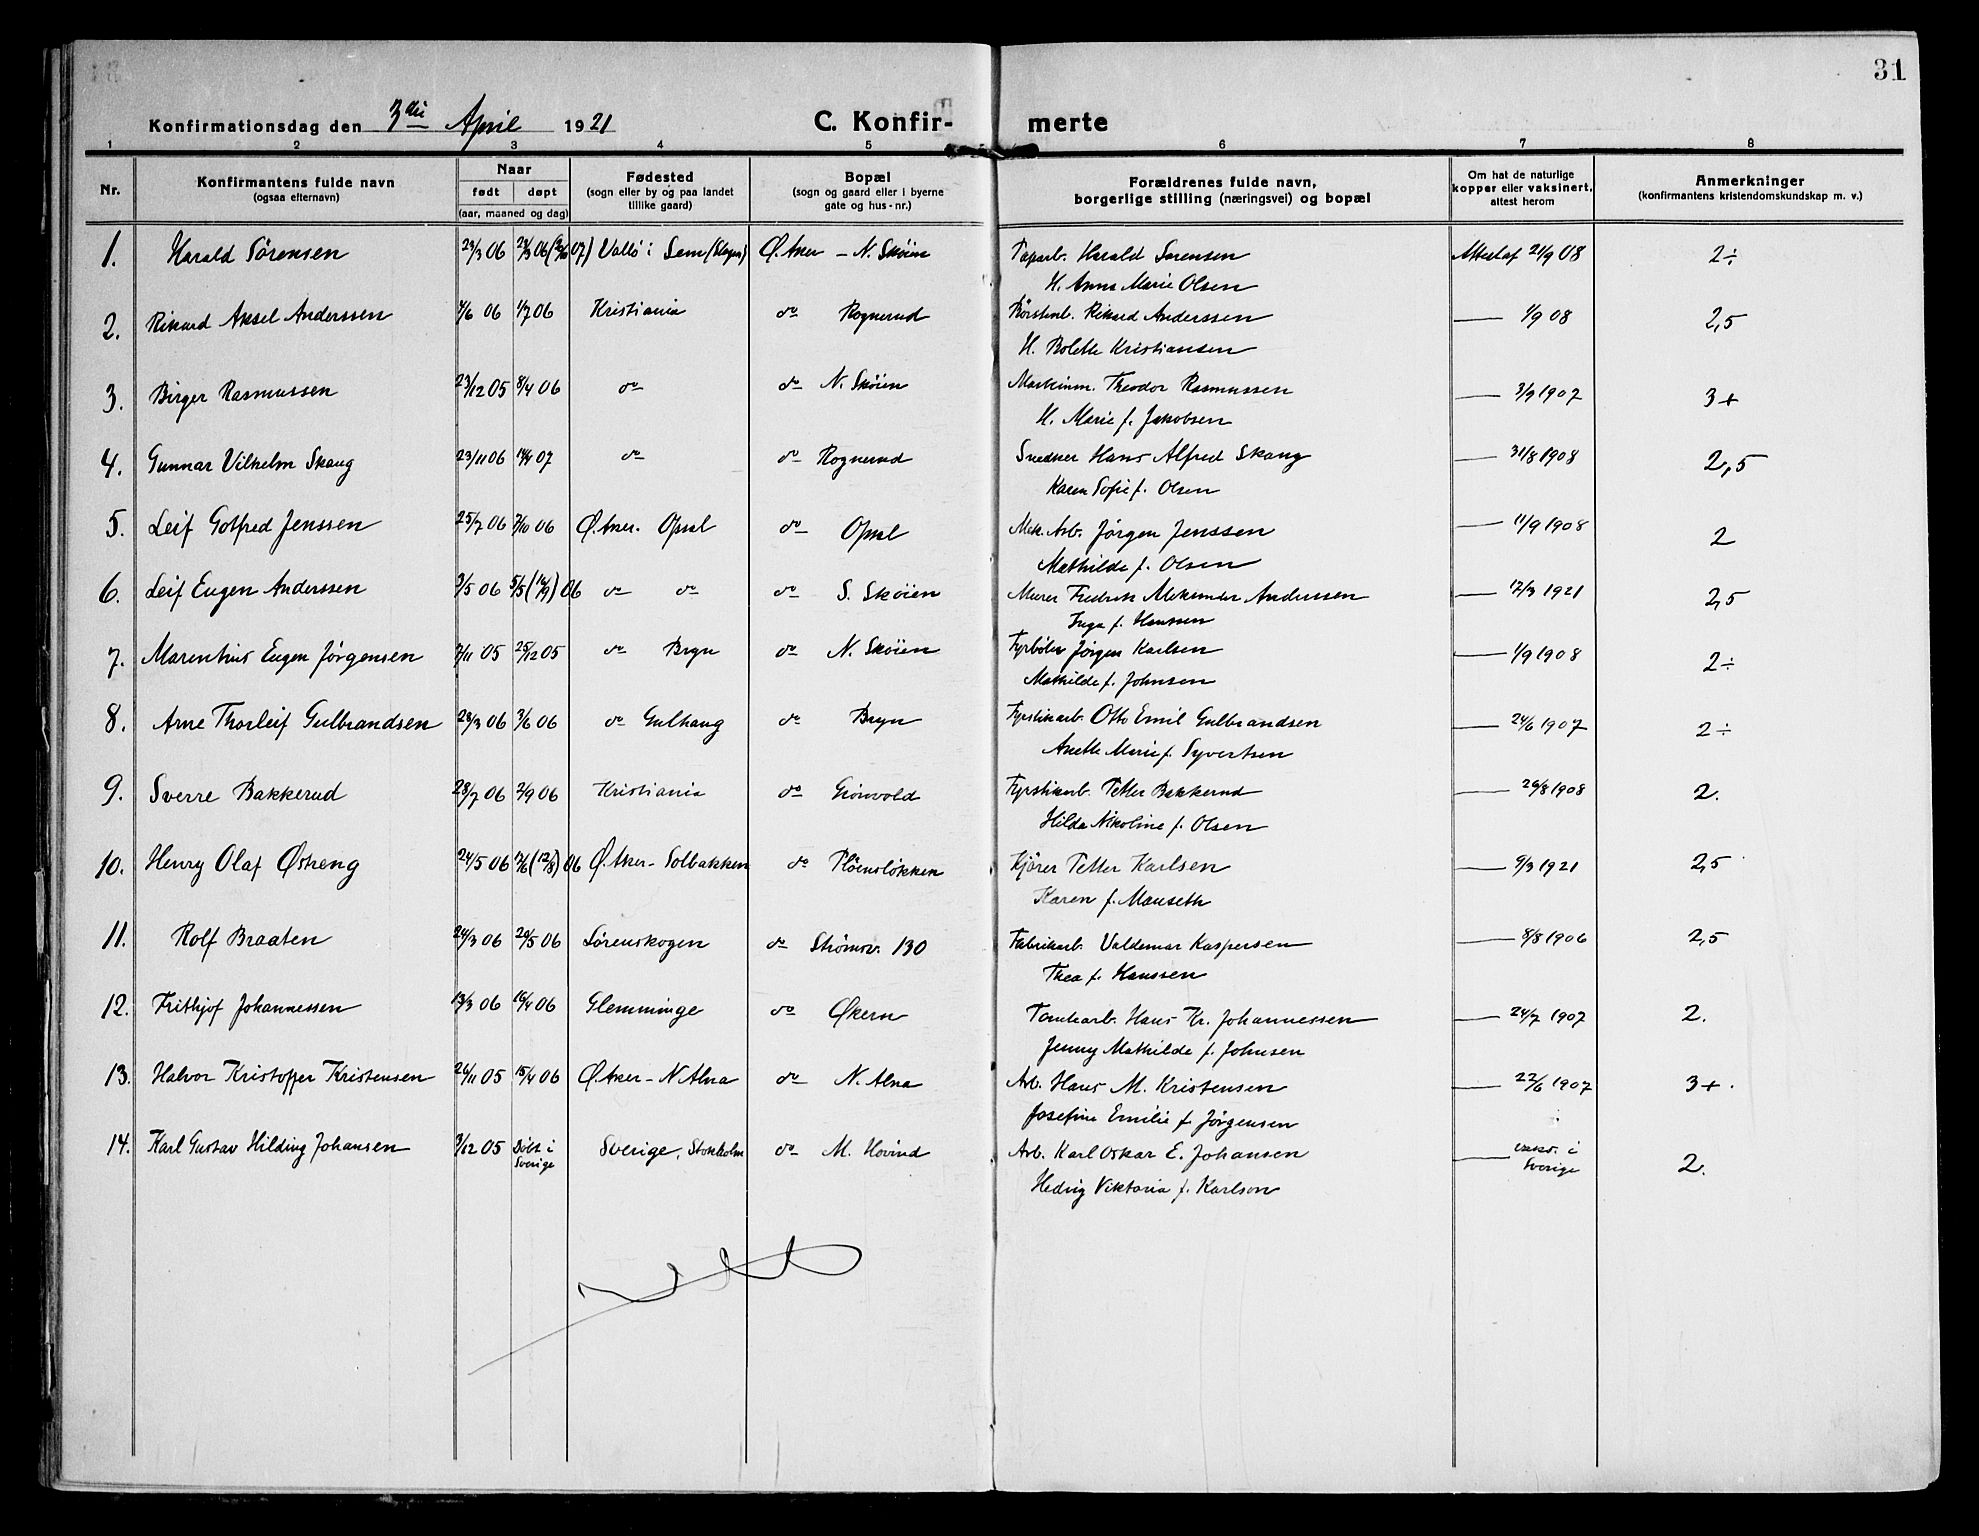 31
Konfirmationsdag den 3die April 1921
C. Konfirmerte
1 2 3 4 5 6 7 8
Nr.
Konfirmantens fulde navn
(ogsaa efternavn)
Naar
født døpt
(aar, maaned og dag)
Fødested
(sogn eller by og paa landet
tillike gaard)
Bopæl
(sogn og gaard eller i byerne
gate og hus-nr.)
Forældrenes fulde navn,
borgerlige stilling (næringsvei) og bopæl
Om hat de naturlige
kopper eller vaksinert,
attest herom
Anmerkninger
(konfirmantens kristendomskundskap m. v.)
1. Harald Sørensen Vallø i Sem (Slagen) Ø. Aker - N. Skøien Harald Sørensen Attest af 21/9 08 2÷
H. Anna Marie Olsen
2. Rikard Aksel Anderssen 4/6 06 1/7 06 Kristiania do Rognerud Rikard Anderssen — 1/9 08 2,5
H. Bolette Kristiansen
3. Birger Rasmussen 23/12 05 8/4 06 do do N. Skøien Maskinm. Theodor Rasmussen — 3/9 1907 3+
H. Marie f. Jakobsen
4. Gunnar Vilhelm Skaug 23/11 06 07 do do Rognerud Snedker Hans Alfred Skaug — 31/8 1908 2,5
Karen Sofie f. Olsen
5. Leif Gotfred Jenssen 25/7 06 7/10 06 Ø. Aker. Opsal do Opsal Mek. Arb. Jørgen Jenssen — 11/9 1908 2
Mathilde f. Olsen
6. Leif Eugen Anderssen 3/5 06 5/5 (16/9) 06 do do do S. Skøien Murer Fredrik Aleksander Anderssen — 17/3 1921 2,5
Inga f. Hanssen
7. Marenhius Eugen Jørgensen 7/11 05 25/12 05 do Bryn do N. Skøien Fyrbøter Jørgen Karlsen — 1/9 1908 2÷
Mathilde f. Johnsen
8. Arne Thorleif Gulbrandsen 28/3 06 3/6 06 do Gulhaug do Bryn Fyrstikarb. Otto Emil Gulbrandsen — 24/6 1907 2÷
Anette Marie f. Syvertsen
9. Sverre Bakkerud 28/7 06 2/9 06 Kristiania do Grønvold Fyrstikarb. Petter Bakkerud — 26/8 1908 2.
Hilda Nikoline f. Olsen
10. Henry Olaf Østreng 24/5 06 17/6 (12/8) 06 Ø. Aker - Solbakken do Pløensløkken Kjører Petter Karlsen — 9/3 1921 2,5
Karen f. Mauseth
11. Rolf Braaten 24/3 06 20/5 06 Lørenskogen do Strømsv. 130 Fabrikarb. Valdemar Kaspersen — 8/8 1906 2,5
Thea f. Hanssen
12. Frithjof Johannessen 13/3 06 16/4 06 Glemminge do Økern Tomtearb. Hans Kr. Johannessen — 24/7 1907 2.
Jenny Mathilde f. Johnsen
13. Halvor Kristoffer Kristensen 26/11 05 15/4 06 Ø. Aker - N. Alna do N. Alna Arb. Hans M. Kristensen — 22/6 1907 3+
Josefine Emilie f. Jørgensen
14. Karl Gustav Hilding Johansen 3/12 05 Døbt i Sverige, Stokholm do M. Hovind Arb. Karl Oskar E. Johansen — vaks. i 2.
Sverige Hedvig Viktoria f. Karlson Sverige